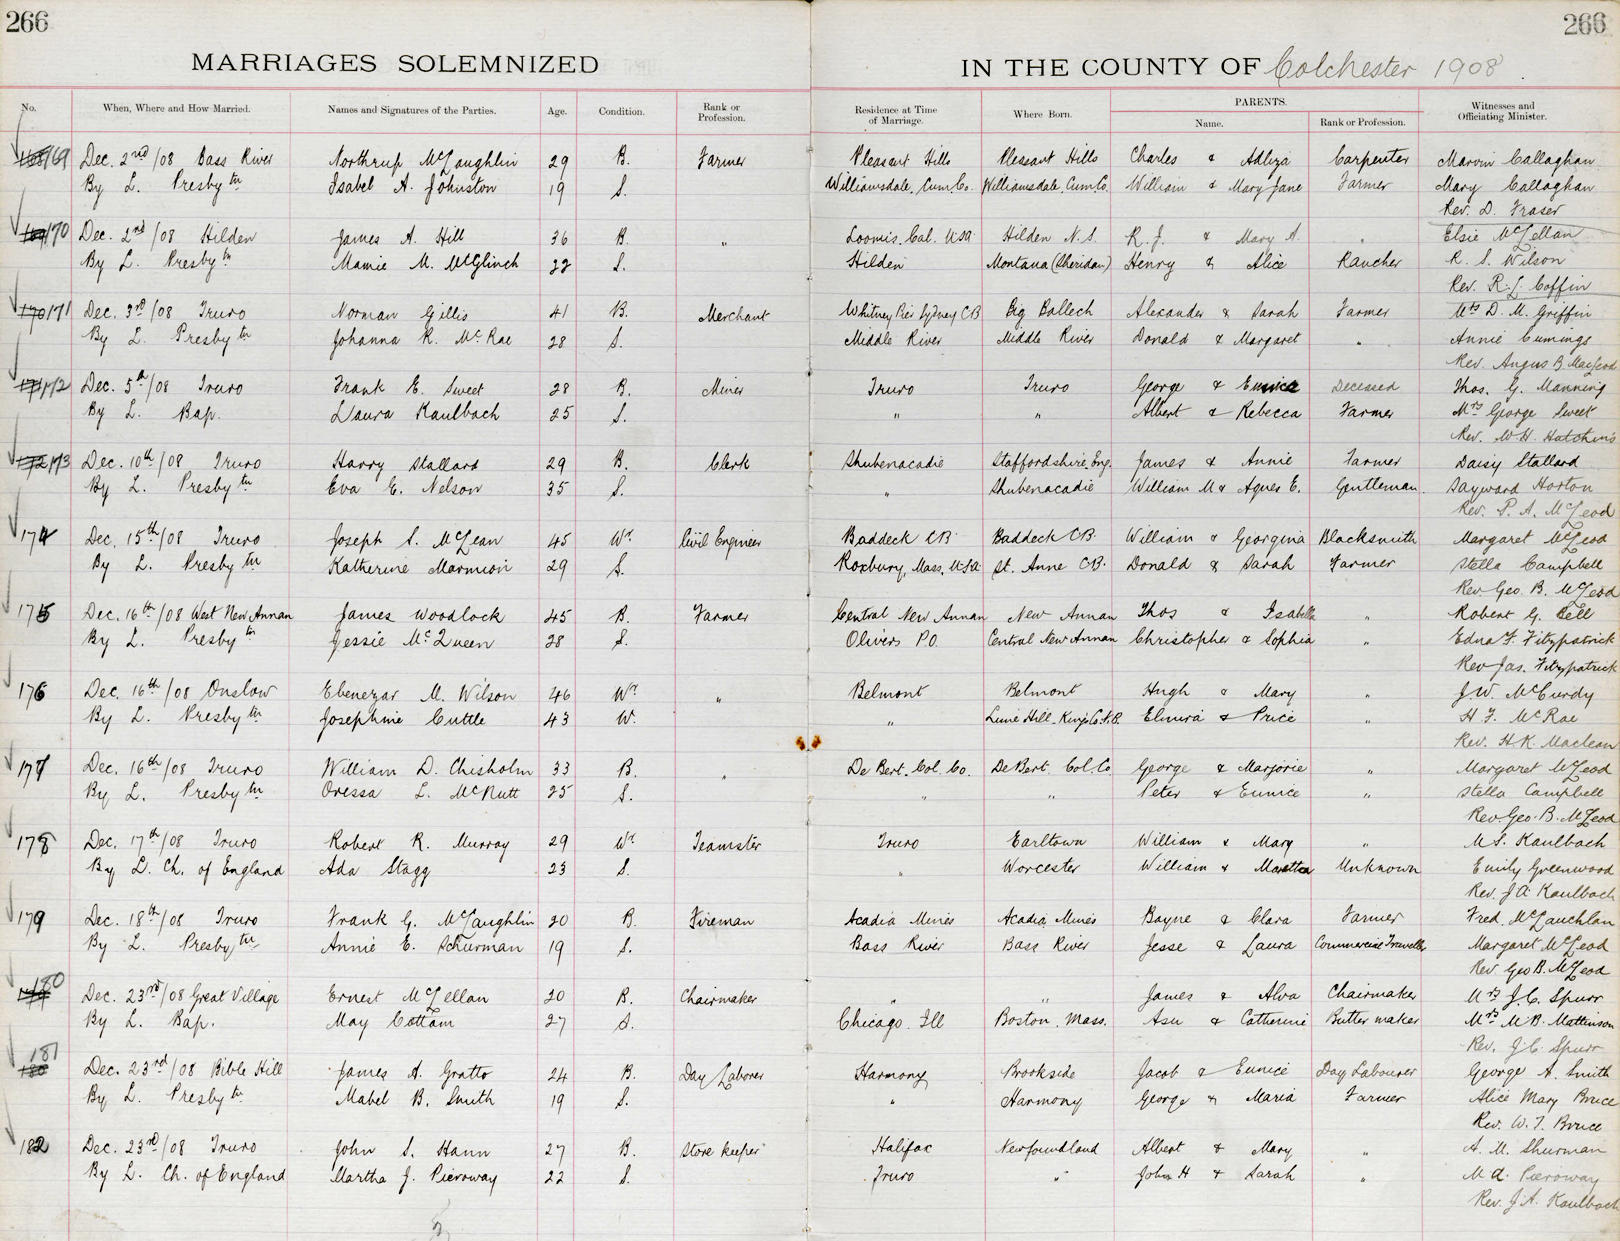 266 266
MARRIAGES SOLEMNIZED IN THE COUNTY OF Colchester 1908
No. When, Where and How Married. Names and Signatures of the Parties. Age. Condition. Rank or Profession. Residence at Time of Marriage. Where Born. PARENTS. Name. Rank or Profession. Witnesses and Officiating Minister.
169 Dec. 2nd/08 Bass River Northrup McLaughlin 29 B. Farmer Pleasant Hills Pleasant Hills Charles & Adliza Carpenter Marvin Callaghan
By L. Presbytn Isabel A. Johnston 19 S. Williamsdale, Cum. Co. Williamsdale, Cum. Co. William & Mary Jane Farmer Mary Callaghan
Rev. D. Fraser
170 Dec. 2nd/08 Hilden James A. Hill 36 B. " Loomis, Cal. USA Hilden N.S. R. J. & Mary A. " Elsie McLellan
By L. Presbytn Mamie M. McGlinch 22 S. Hilden Montana (Sheridan) Henry & Alice Rancher R. S. Wilson
Rev. R. L. Coffin
171 Dec. 3rd/08 Truro Norman Gillis 41 B. Merchant Whitney Pier Sydney CB Big Ballech Alexander & Sarah Farmer Mrs D. M. Griffin
By L. Presbytn Johanna R. McRae 28 S. Middle River Middle River Donald & Margaret " Annie Cumings
Rev. Angus B. MacLeod
172 Dec. 5th/08 Truro Frank E. Sweet 28 B. Miner Truro Truro George & Eunice Deceased Thos. G. Manning
By L. Bap. Laura Kaulbach 25 S. " " Albert & Rebecca Farmer Mrs George Sweet
Rev. W. H. Hutchins
173 Dec. 10th/08 Truro Harry Stallard 29 B. Clerk Shubenacadie Staffordshire, Eng. James & Annie Farmer Daisy Stallard
By L. Presbytn Eva E. Nelson 35 S. " Shubenacadie William M & Agnes E. Gentleman. Sayward Horton
Rev. P. A. McLeod
174 Dec. 15th/08 Truro Joseph S. McLean 45 Wr. Civil Engineer Baddeck CB. Baddeck CB. William & Georgina Blacksmith Margaret McLeod
By L. Presbytn Katherine Marmion 29 S. Roxbury, Mass, USA St. Anne CB. Donald & Sarah Farmer Stella Campbell
Rev Geo. B. McLeod
175 Dec. 16th/08 West New Annan James Woodlock 45 B. Farmer Central New Annan New Annan Thos & Isabella " Robert G. Bell
By L. Presbytn Jessie McQueen 28 S. Olivers P.O. Central New Annan Christopher & Sophia " Edna F. Fitzpatrick
Rev Jas. Fitzpatrick
176 Dec. 16th/08 Onslow Ebenezar M. Wilson 46 Wr. " Belmont Belmont Hugh & Mary " J. W. McCurdy
By L. Presbytn Josephine Cuttle 43 W. " Lime Hill, Kings Co. N.B. Elmira & Price " H. F. McRae
Rev. H. K. Maclean
177 Dec. 16th/08 Truro William D. Chisholm 33 B. " De Bert. Col. Co. De Bert. Col. Co. George & Marjorie " Margaret McLeod
By L. Presbytn Oressa L. McNutt 25 S. " " Peter & Eunice " Stella Campbell
Rev. Geo. B. McLeod
178 Dec. 17th/08 Truro Robert R. Murray 29 Wr. Teamster Truro Earltown William & Mary " M. S. Kaulbach
By L. Ch. of England Ada Stagg 23 S. " Worcester William & Unknown Emily Greenwood
Rev. J. A. Kaulbach
179 Dec. 18th/08 Truro Frank G. McLaughlin 20 B. Fireman Acadia Mines Acadia Mines Bayne & Clara Farmer Fred. McLauchlan
By L. Presbytn Annie E. Schurman 19 S. Bass River Bass River Jesse & Laura Commercial Traveller Margaret McLeod
Rev Geo B. McLeod
180 Dec. 23rd/08 Great Village Ernest McLellan 20 B. Chairmaker " " James & Alva Chairmaker Mrs J. C. Spurr
By L. Bap. May Cottam 27 S. Chicago, Ill Boston, Mass. Asu & Catherine Butter maker Mrs M. B. Mattinson
Rev. J. C. Spurr
181 Dec. 23rd/08 Bible Hill James A. Gratto 24 B. Day Laborer Harmony Brookside Jacob & Eunice Day Labourer George A. Smith
By L. Presbytn Mabel B. Smith 19 S. " Harmony George & Maria Farmer Alice Mary Bruce
Rev. W. T. Bruce
182 Dec. 23rd/08 Truro John S. Hann 27 B. Store keeper Halifax Newfoundland Albert & Mary " A. M. Shurman
By L. Ch. of England Martha J. Pieroway 22 S. Truro " John H & Sarah " M A. Pieroway
Rev. J. A. Kaulbach